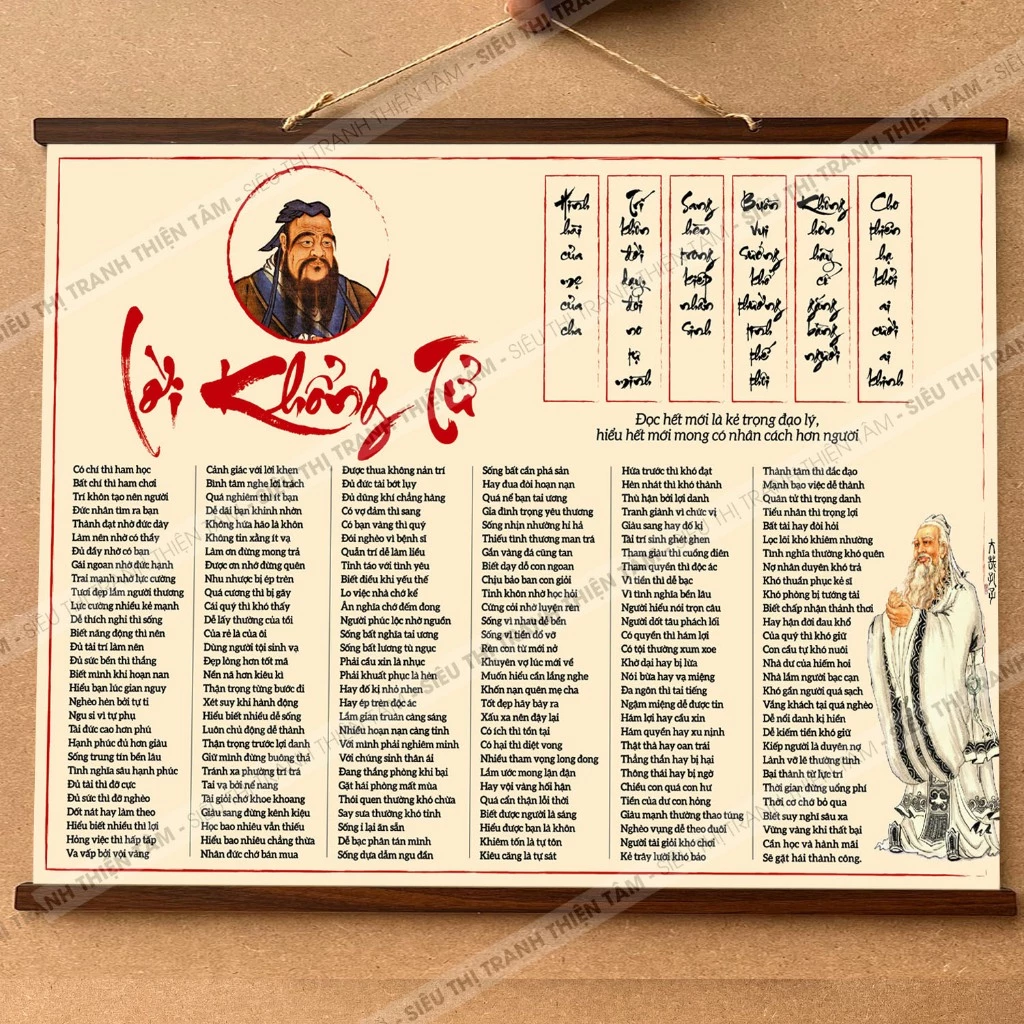 SIÊU THỊ TRANH THIỆN TÂM - SIÊU THỊ TRANH THIỆN TÂM
Lời Khổng Tử
Hình hài của mẹ của cha
Trí khôn đời dạy, đói no tự mình
Sang hèn trong kiếp nhân sinh
Buồn vui sướng khổ thường tình thế thôi
Không hơn hãy cố gắng bằng người
Cho thiên hạ khỏi ai cười ai khinh
Đọc hết mới là kẻ trọng đạo lý,
hiểu hết mới mong có nhân cách hơn người
Có chí thì ham học
Bất chí thì ham chơi
Trí khôn tạo nên người
Đức nhân tìm ra bạn
Thành đạt nhờ đức dày
Làm nên nhờ có thầy
Đủ đầy nhờ có bạn
Gái ngoan nhờ đức hạnh
Trai mạnh nhờ lực cường
Tươi đẹp lắm người thương
Lực cường nhiều kẻ mạnh
Dễ thích nghi thì sống
Biết năng động thì nên
Đủ tài trí làm nên
Đủ sức bền thì thắng
Biết mình khi hoạn nan
Hiểu bạn lúc gian nguy
Nghèo hèn bởi tự ti
Ngu si vì tự phụ
Tài đức cao hơn phú
Hạnh phúc đủ hơn giàu
Sống trung tín bền lâu
Tình nghĩa sâu hạnh phúc
Đủ tài thì đỡ cực
Đủ sức thì đỡ nghèo
Dốt nát hay làm theo
Hiểu biết nhiều thì lợi
Hỏng việc thì hấp tấp
Va vấp bởi vội vàng
Cảnh giác với lời khen
Bình tâm nghe lời trách
Quá nghiêm thì ít bạn
Dễ dãi bạn khinh nhờn
Không hứa hão là khôn
Không tin xằng ít vạ
Làm ơn đừng mong trả
Được ơn nhớ đừng quên
Nhu nhược bị ép trên
Quá cương thì bị gãy
Cái quý thì khó thấy
Dễ lấy thường của tồi
Của rẻ là của ôi
Dùng người tội sinh vạ
Đẹp lòng hơn tốt mã
Nền nã hơn kiêu kì
Thận trọng từng bước đi
Xét suy khi hành động
Hiểu biết nhiều dễ sống
Luôn chủ động dễ thành
Thận trọng trước lợi danh
Giữ mình đừng buông thả
Tránh xa phường trí trá
Tai vạ bởi nể nang
Tài giỏi chớ khoe khoang
Giàu sang đừng kênh kiệu
Học bao nhiêu vẫn thiếu
Hiểu bao nhiêu chẳng thừa
Nhân đức chớ bán mua
Được thua không nản trí
Đủ đức tài bớt lụy
Đủ dũng khí chẳng hàng
Có vợ đảm thì sang
Có bạn vàng thì quý
Đói nghèo vì bệnh sĩ
Quẫn trí dễ làm liều
Tỉnh táo với tình yêu
Biết điều khi yếu thế
Lo việc nhà chớ kể
Ân nghĩa chớ đếm đong
Người phúc lộc nhờ nguồn
Sống bất nghĩa tai ương
Sống bất lương tù ngục
Phải cầu xin là nhục
Phải khuất phục là hèn
Hay đố kị nhỏ nhen
Hay ép trên độc ác
Lắm gian truân càng sáng
Nhiều hoạn nạn càng tinh
Với mình phải nghiêm minh
Với chúng sinh thân ái
Đang thắng phòng khi bại
Gặt hái phòng mất mùa
Thói quen thường khó chừa
Say sưa thường khó tỉnh
Sống ỉ lại ăn sẵn
Dễ bạc phân tán mình
Sống dựa dẫm ngu đần
Sống bất cần phá sản
Hay đua đòi hoạn nạn
Quá nể bạn tai ương
Gia đình trọng yêu thương
Sống nhịn nhường hỉ hả
Thiếu tình thương man trá
Gắn vàng đá cũng tan
Biết dạy dỗ con ngoan
Chịu bảo ban con giỏi
Tinh khôn nhờ học hỏi
Cứng cỏi nhờ luyện rèn
Sống vì nhau dễ bền
Sống vì tiền đổ vỡ
Rèn con từ mới nở
Khuyên vợ lúc mới về
Muốn hiểu cần lắng nghe
Khốn nạn quên mẹ cha
Tốt đẹp hãy bày ra
Xấu xa nên đậy lại
Có ích thì tồn tại
Có hại thì diệt vong
Nhiều tham vọng long đong
Lắm ước mong lận đận
Hay vội vàng hối hận
Quá cẩn thận lỗi thời
Biết được người là sáng
Hiểu được bạn là khôn
Khiêm tốn là tự tôn
Kiêu căng là tự sát
Hứa trước thì khó đạt
Hèn nhát thì khó thành
Thù hận bởi lợi danh
Tranh giành vì chức vị
Giàu sang hay đố kị
Tài trí sinh ghét ghen
Tham giàu thì cuồng điên
Tham quyền thì độc ác
Vì tiền thì dễ bạc
Vì tình nghĩa bền lâu
Người hiểu nói trọn câu
Người dốt tâu phách lối
Có quyền thì hám lợi
Có tội thường xum xoe
Khờ dại hay bị lừa
Nói bừa hay vạ miệng
Đa ngôn thì tai tiếng
Ngậm miệng dễ được tin
Hám lợi hay cầu xin
Hám quyền hay xu nịnh
Thật thà hay oan trái
Thẳng thắn hay bị hại
Thông thái hay bị ngờ
Chiều con quá con hư
Tiền của dư con hỏng
Giàu mạnh thường thao túng
Nghèo vụng dễ theo đuôi
Người tài giỏi khó chơi
Kẻ trây lười khó bảo
Thành tâm thì đắc đạo
Mạnh bạo việc dễ thành
Quân tử thì trọng danh
Tiểu nhân thì trọng lợi
Bất tài hay đòi hỏi
Lọc lõi khó khiêm nhường
Tình nghĩa thường khó quên
Nợ nhân duyên khó trả
Khó thuần phục kẻ sĩ
Khó phòng bị tướng tài
Biết chấp nhận thảnh thơi
Hay hận đời đau khổ
Của quý thì khó giữ
Con cầu tự khó nuôi
Nhà dư của hiếm hoi
Nhà lắm người bạc cạn
Khó gần người quá sạch
Vắng khách tại quá nghèo
Dễ nổi danh kị hiền
Dễ kiếm tiền khó giữ
Kiếp người là duyên nợ
Lành vỡ lẽ thường tình
Bại thành từ lực trí
Thời gian đừng uổng phí
Thời cơ chớ bỏ qua
Biết suy nghĩ sâu xa
Vững vàng khi thất bại
Cần học và hành mãi
Sẽ gặt hái thành công.